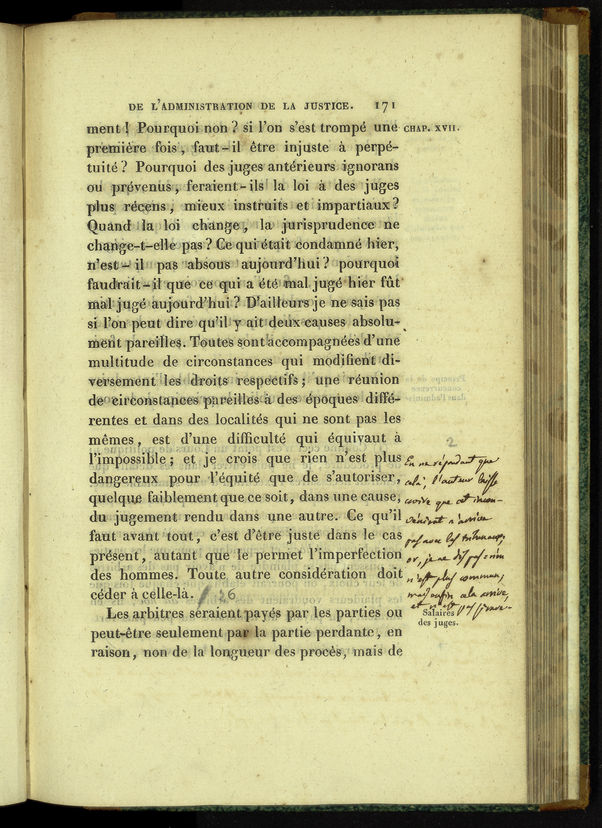 DE L'ADMINISTRATION DE LA JUSTICE. 171
CHAP. XVII.
ment! Pourquoi non? si l'on s'est trompé une
première fois, faut-il être injuste à perpé-
tuité? Pourquoi des juges antérieurs ignorans
ou prévenus, feraient-ils la loi à des juges
plus récens, mieux instruits et impartiaux?
Quand la loi change, la jurisprudence ne
change-t-elle pas? Ce qui était condamné hier,
n'est-il pas absous aujourd'hui? pourquoi
faudrait-il que ce qui a été mal jugé hier fût
mal jugé aujourd'hui? D'ailleurs je ne sais pas
si l'on peut dire qu'il y ait deux causes absolu-
ment pareilles. Toutes sont accompagnées d'une
multitude de circonstances qui modifient di-
versement les droits respectifs; une réunion
de circonstances pareilles à des époques diffé-
rentes et dans des localités qui ne sont pas les
mêmes, est d'une difficulté qui équivaut à
l'impossible; et je crois que rien n'est plus
dangereux pour l'équité que de s'autoriser,
quelque faiblement que ce soit, dans une cause,
du jugement rendu dans une autre. Ce qu'il
faut avant tout, c'est d'être juste dans le cas
présent, autant que le permet l'imperfection
des hommes. Toute autre considération doit
céder à celle-là. 26
2
En ne répondant que
cela, l'auteur laisse
croire que cet incon-
vénient n'arrive
pas avec les tribunaux,
or, je ne dis pas rien
n'est plus commun,
mais enfin cela arrive,
et n'est pas
Salaires
des juges.
Les arbitres seraient payés par les parties ou
peut-être seulement par la partie perdante, en
raison, non de la longueur des procès, mais de